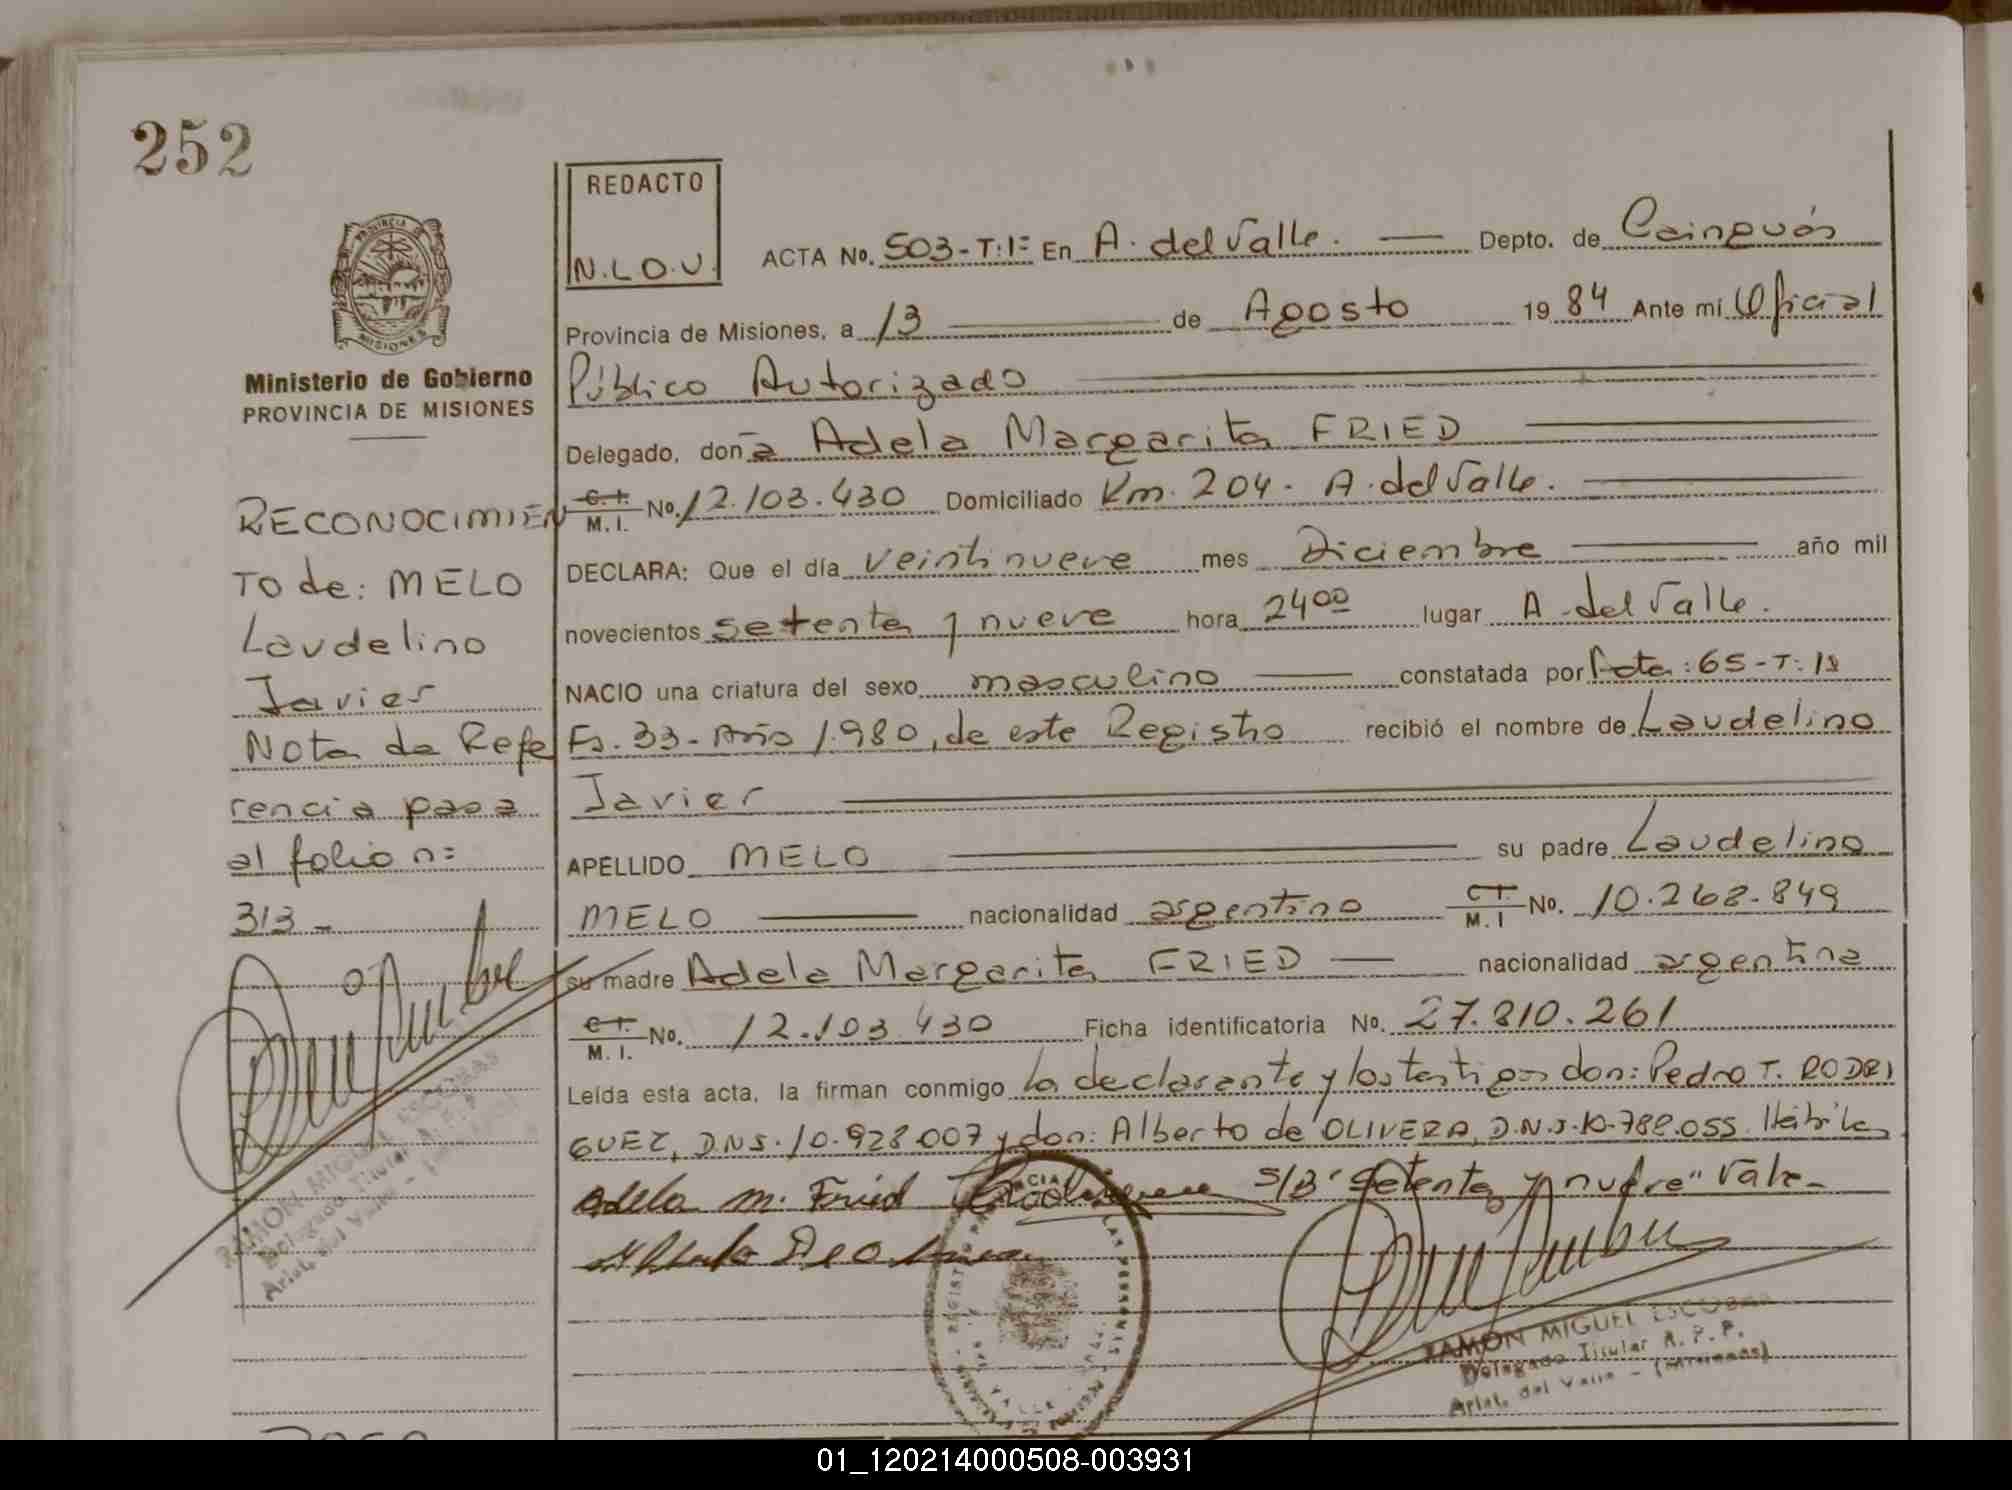 252
PROVINCIA DE
MISIONES
Ministerio de Gobierno
PROVINCIA DE MISIONES
RECONOCIMIEN
TO de: MELO
Laudelino
Javier
Nota de Refe
rencia pasa
al folio n=
313-
RAMON MIGUEL ESCOBAR
Delegado Titular R. P. P.
Arist. del Valle - (Misiones)
REDACTO
N.L.O.V.
ACTA No. 503-T:1= En A. del Valle. Depto. de Cainguás
Provincia de Misiones, a 13 de Agosto 1984 Ante mí Oficial
Público Autorizado
Delegado, doña Adela Margarita FRIED
C.I. M.I. No. 12.103.430 Domiciliado Km. 204. A. del Valle.
DECLARA: Que el día veintinueve mes Diciembre año mil
novecientos setenta y nueve hora 2400 lugar A. del Valle.
NACIO una criatura del sexo masculino constatada por Acta: 65-T: 1º
Fs. 33- Año 1.980, de este Registro recibió el nombre de Laudelino
Javier
APELLIDO MELO su padre Laudelino
MELO nacionalidad argentino C.I. M.I No. 10.268.849
su madre Adela Margarita FRIED nacionalidad argentina
C.I. M.I. No. 12.103.430 Ficha identificatoria No. 27.810.261
Leída esta acta, la firman conmigo la declarante y los testigos don: Pedro T. RODRI
GUEZ, D.N.I. 10.928.007 y don: Alberto de OLIVERA, D.N.I. 10.788.055. Hábiles
Adela M. Fried S/B "setenta y nueve" Vale-
RAMON MIGUEL ESCOBAR
Delegado Titular R. P. P.
Arist. del Valle - (Misiones)
01_120214000508-003931